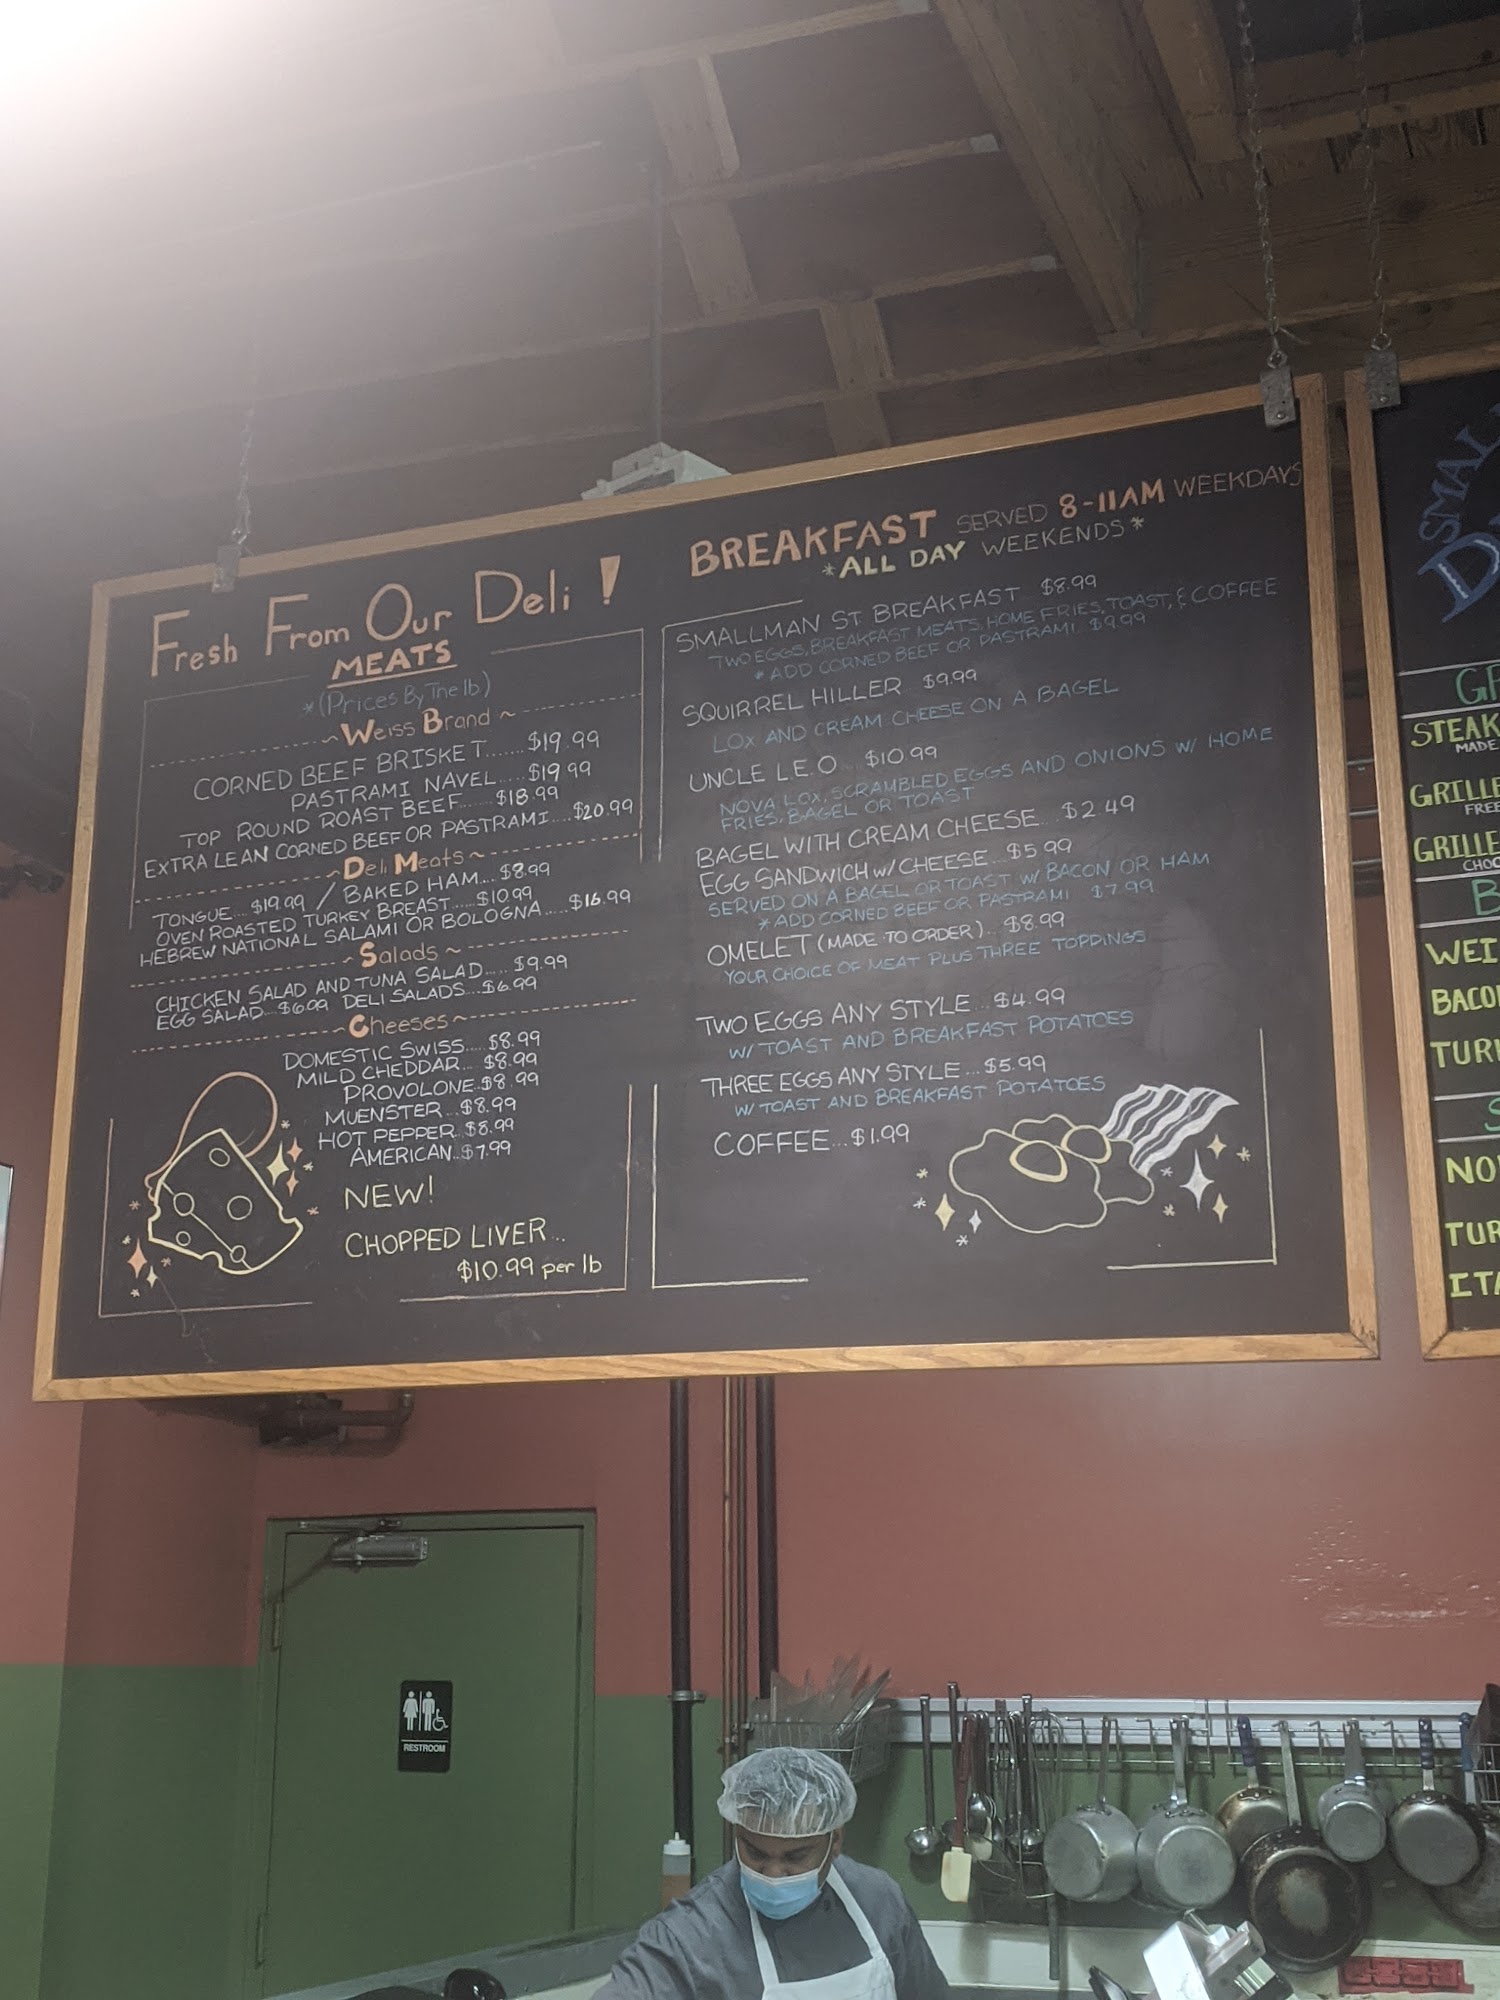 Fresh From Our Deli !
MEATS
*(Prices By The lb)
~ Weiss Brand ~
CORNED BEEF BRISKET.......$19.99
PASTRAMI NAVEL.....$19.99
TOP ROUND ROAST BEEF.......$18.99
EXTRA LEAN CORNED BEEF OR PASTRAMI....$20.99
~ Deli Meats ~
TONGUE....$19.99 / BAKED HAM...$8.99
OVEN ROASTED TURKEY BREAST.....$10.99
HEBREW NATIONAL SALAMI OR BOLOGNA.....$16.99
~ Salads ~
CHICKEN SALAD AND TUNA SALAD.....$9.99
EGG SALAD...$6.99 DELI SALADS...$6.99
~ Cheeses ~
DOMESTIC SWISS....$8.99
MILD CHEDDAR...$8.99
PROVOLONE..$8.99
MUENSTER...$8.99
HOT PEPPER..$8.99
AMERICAN..$7.99
NEW!
CHOPPED LIVER...
$10.99 per lb
BREAKFAST SERVED 8-11AM WEEKDAYS
*ALL DAY WEEKENDS*
SMALLMAN ST BREAKFAST $8.99
TWO EGGS, BREAKFAST MEATS, HOME FRIES, TOAST, & COFFEE
* ADD CORNED BEEF OR PASTRAMI $9.99
SQUIRREL HILLER $9.99
LOX AND CREAM CHEESE ON A BAGEL
UNCLE L.E.O $10.99
NOVA LOX, SCRAMBLED EGGS AND ONIONS W/ HOME
FRIES, BAGEL OR TOAST
BAGEL WITH CREAM CHEESE...$2.49
EGG SANDWICH W/ CHEESE...$5.99
SERVED ON A BAGEL OR TOAST W/ BACON OR HAM
* ADD CORNED BEEF OR PASTRAMI $7.99
OMELET (MADE TO ORDER)...$8.99
YOUR CHOICE OF MEAT PLUS THREE TOPPINGS
TWO EGGS ANY STYLE...$4.99
W/ TOAST AND BREAKFAST POTATOES
THREE EGGS ANY STYLE...$5.99
W/ TOAST AND BREAKFAST POTATOES
COFFEE...$1.99
SMAL
STEAK
MADE
GRILLE
FREE
GRILLE
CHOC
WEI
BACO
TURK
NO
TUR
ITA
RESTROOM